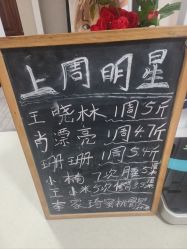 上周明星
王晓林 1周5斤
肖漂亮 1周4.7斤
珊珊 1周5.4斤
小楠 7次
王小米 5次
李家琦